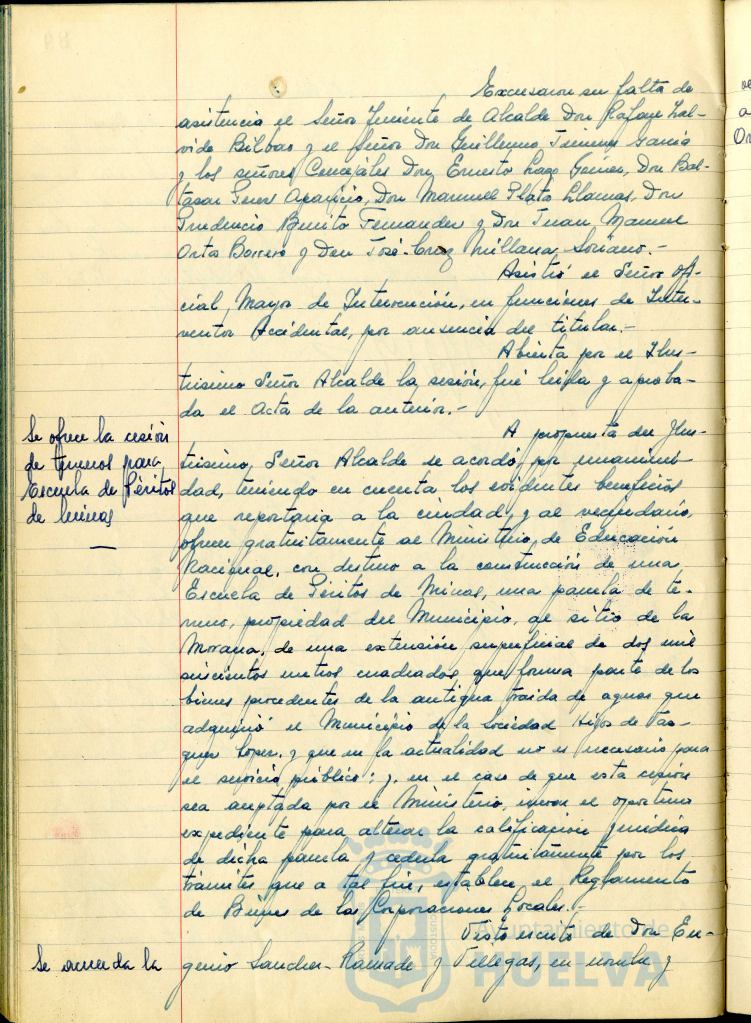 Excusaron su falta de
asistencia el Señor Teniente de Alcalde Don Rafael Sal-
vide Bilbao y el Señor Don Guillermo Jimenez García
y los señores Concejales Don Ernesto Lago Gómez, Don Bal-
tasar Perez Aparicio, Don Manuel Plata Llamas, Don
Prudencio Benito Fernandez y Don Juan Manuel
Orta Borrero y Don José-Cruz Millana Soriano.-
Asistió el Señor Ofi-
cial Mayor de Intervención, en funciones de Inter-
ventor Accidental, por ausencia del titular.-
Abierta por el Ilus-
trisimo Señor Alcalde la sesión, fué leida y aproba-
da el Acta de la anterior.-
Se ofrece la cesión
de terrenos para
Escuela de Péritos
de Minas
A propuesta del Ilus-
trisimo, Señor Alcalde se acordó, por unanimi-
dad, teniendo en cuenta los evidentes beneficios
que reportaria a la ciudad y al vecindario,
ofrecer gratuitamente al Ministerio de Educación
Nacional, con destino a la construcción de una
Escuela de Péritos de Minas, una parcela de te-
rreno, propiedad del Municipio, al sitio de la
Morana, de una extensión superficial de dos mil
seiscientos metros cuadrados, que forma parte de los
bienes procedentes de la antigua traida de aguas que
adquirió el Municipio de la Sociedad Hijos de Vaz-
quez Lopez, y que en la actualidad no es necesario para
el servicio público; y, en el caso de que esta cesión
sea aceptada por el Ministerio, incoar el oportuno
expediente para alterar la calificación juridica
de dicha parcela y cederla gratuitamente por los
trámites que a tal fin, establece el Reglamento
de Bienes de las Corporaciones Locales.-
Visto escrito de Don Eu-
Se acuerda la
genio Sanchez-Ramade y Villegas, en nombre y
Ayuntamiento de
HUELVA